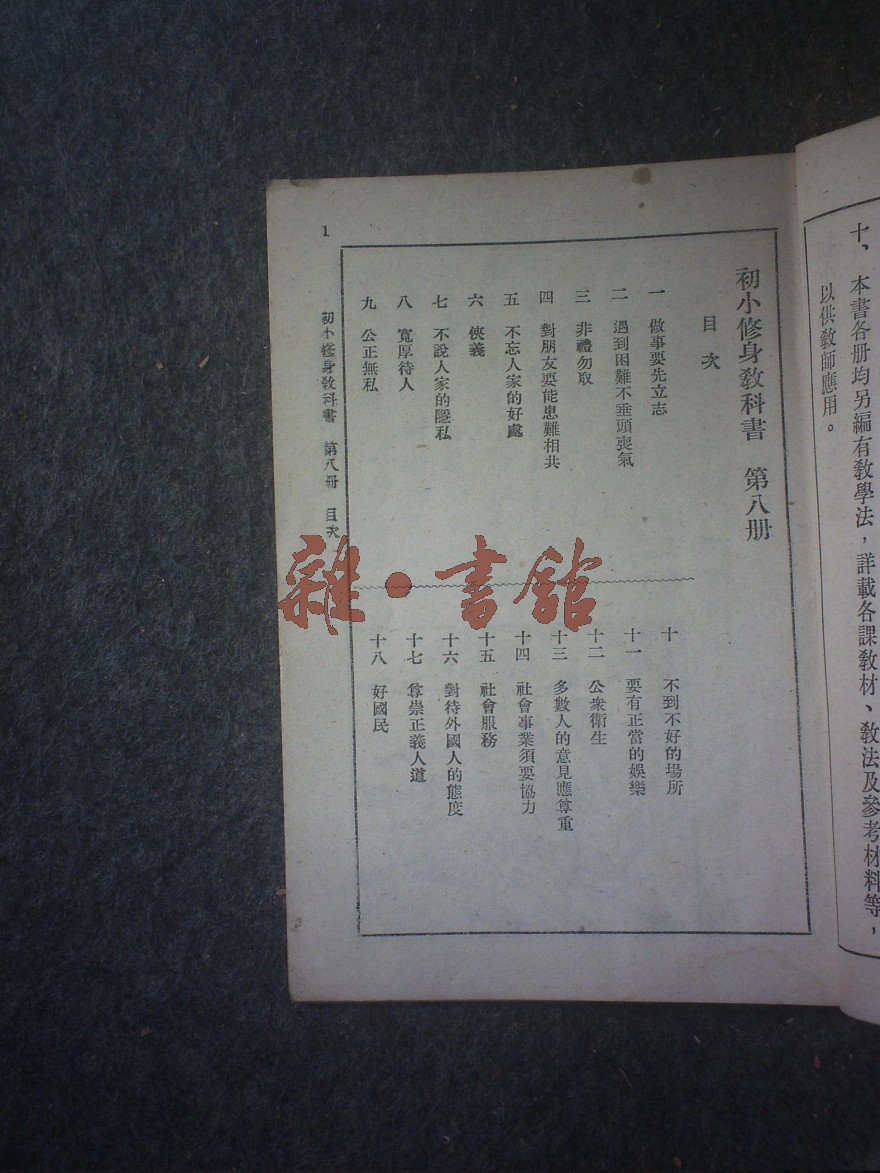 十、本書各册均另編有教學法，詳載各課教材、教法及參考材料等，
以供教師應用。
初小修身教科書　第八册
目次
一　做事要先立志
二　遇到困難不垂頭喪氣
三　非禮勿取
四　對朋友要能患難相共
五　不忘人家的好處
六　俠義
七　不說人家的隱私
八　寬厚待人
九　公正無私
十　不到不好的場所
十一　要有正當的娛樂
十二　公衆衛生
十三　多數人的意見應尊重
十四　社會事業須要協力
十五　社會服務
十六　對待外國人的態度
十七　尊崇正義人道
十八　好國民
初小修身教科書　第八册　目次
1
雜·書館